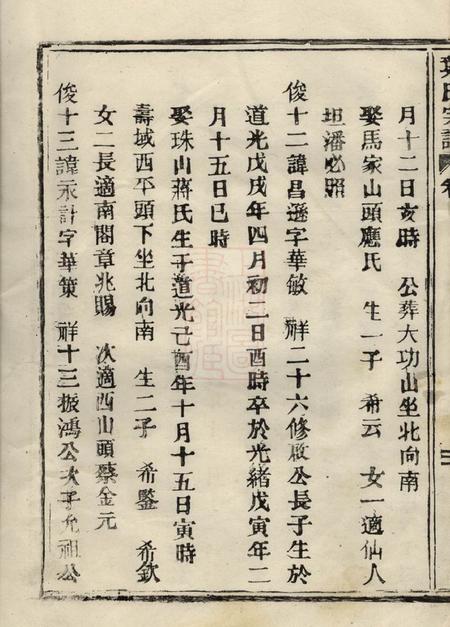 葉氏宗譜 卷
月十二日亥時 公葬大功山坐北向南
娶馬家山頭應氏 生一子 希云 女一適仙人
坦潘必照
俊十二諱昌遜字華敏 祥二十六修啟公長子生於
道光戊戌年四月初二日酉時卒於光緒戊寅年二
月十五日巳時
娶珠山蔣氏生于道光己酉年十月十五日寅時
壽域西平頭下坐北向南 生二子 希鑒 希欽
女二長適南閣章兆賜 次適西山頭蔡金元
俊十三諱永計字華策 祥十三振鴻公次子允祖公